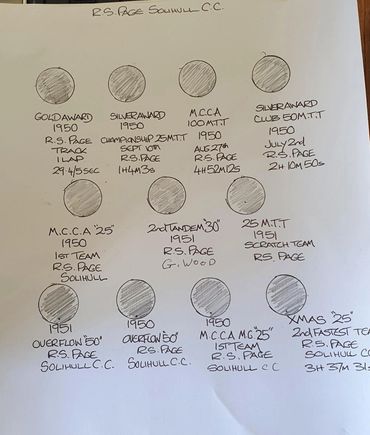 R.S. PAGE SOLIHULL C.C.
GOLD AWARD
1950
R.S. PAGE
TRACK
1 LAP
29.4/5 SEC
SILVER AWARD
1950
CHAMPIONSHIP 25 M.T.T
SEPT 10th
R.S. PAGE
1H 4M 3s
M.C.C.A
100 M.T.T
1950
AUG 27th
R.S. PAGE
4H 52M 12s
SILVER AWARD
CLUB 50 M.T.T
1950
JULY 2nd
R.S. PAGE
2H 10M 50s
M.C.C.A "25"
1950
1ST TEAM
R.S. PAGE
SOLIHULL
2nd TANDEM "30"
1951
R.S. PAGE
G. WOOD
25 M.T.T
1951
SCRATCH TEAM
R.S. PAGE
1951
OVERFLOW "50"
R.S. PAGE
SOLIHULL C.C.
1950
OVERFLOW "50"
R.S. PAGE
SOLIHULL C.C.
1950
M.C.C.A MG "25"
1ST TEAM
R.S. PAGE
SOLIHULL C C
XMAS "25"
2nd FASTEST TEA
R.S. PAGE
SOLIHULL CC
3H 37M 31s